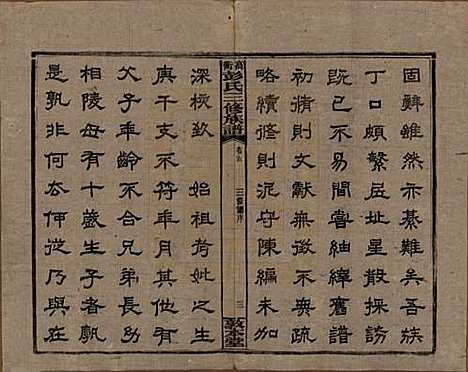 固辭雖然亦綦難矣吾族
丁口頗繁茲址星散採訪
既已不易間嘗紬繹舊譜
初續則文獻無徵不無疏
略續修則泥守陳編未加
彭氏三修族譜
三
敦本堂
深核歟　始祖考妣之生
庚干支不符年月其他有
父子年齡不合兄弟長幼
相陵母有十歲生子者孰
是孰非何去何從乃與在